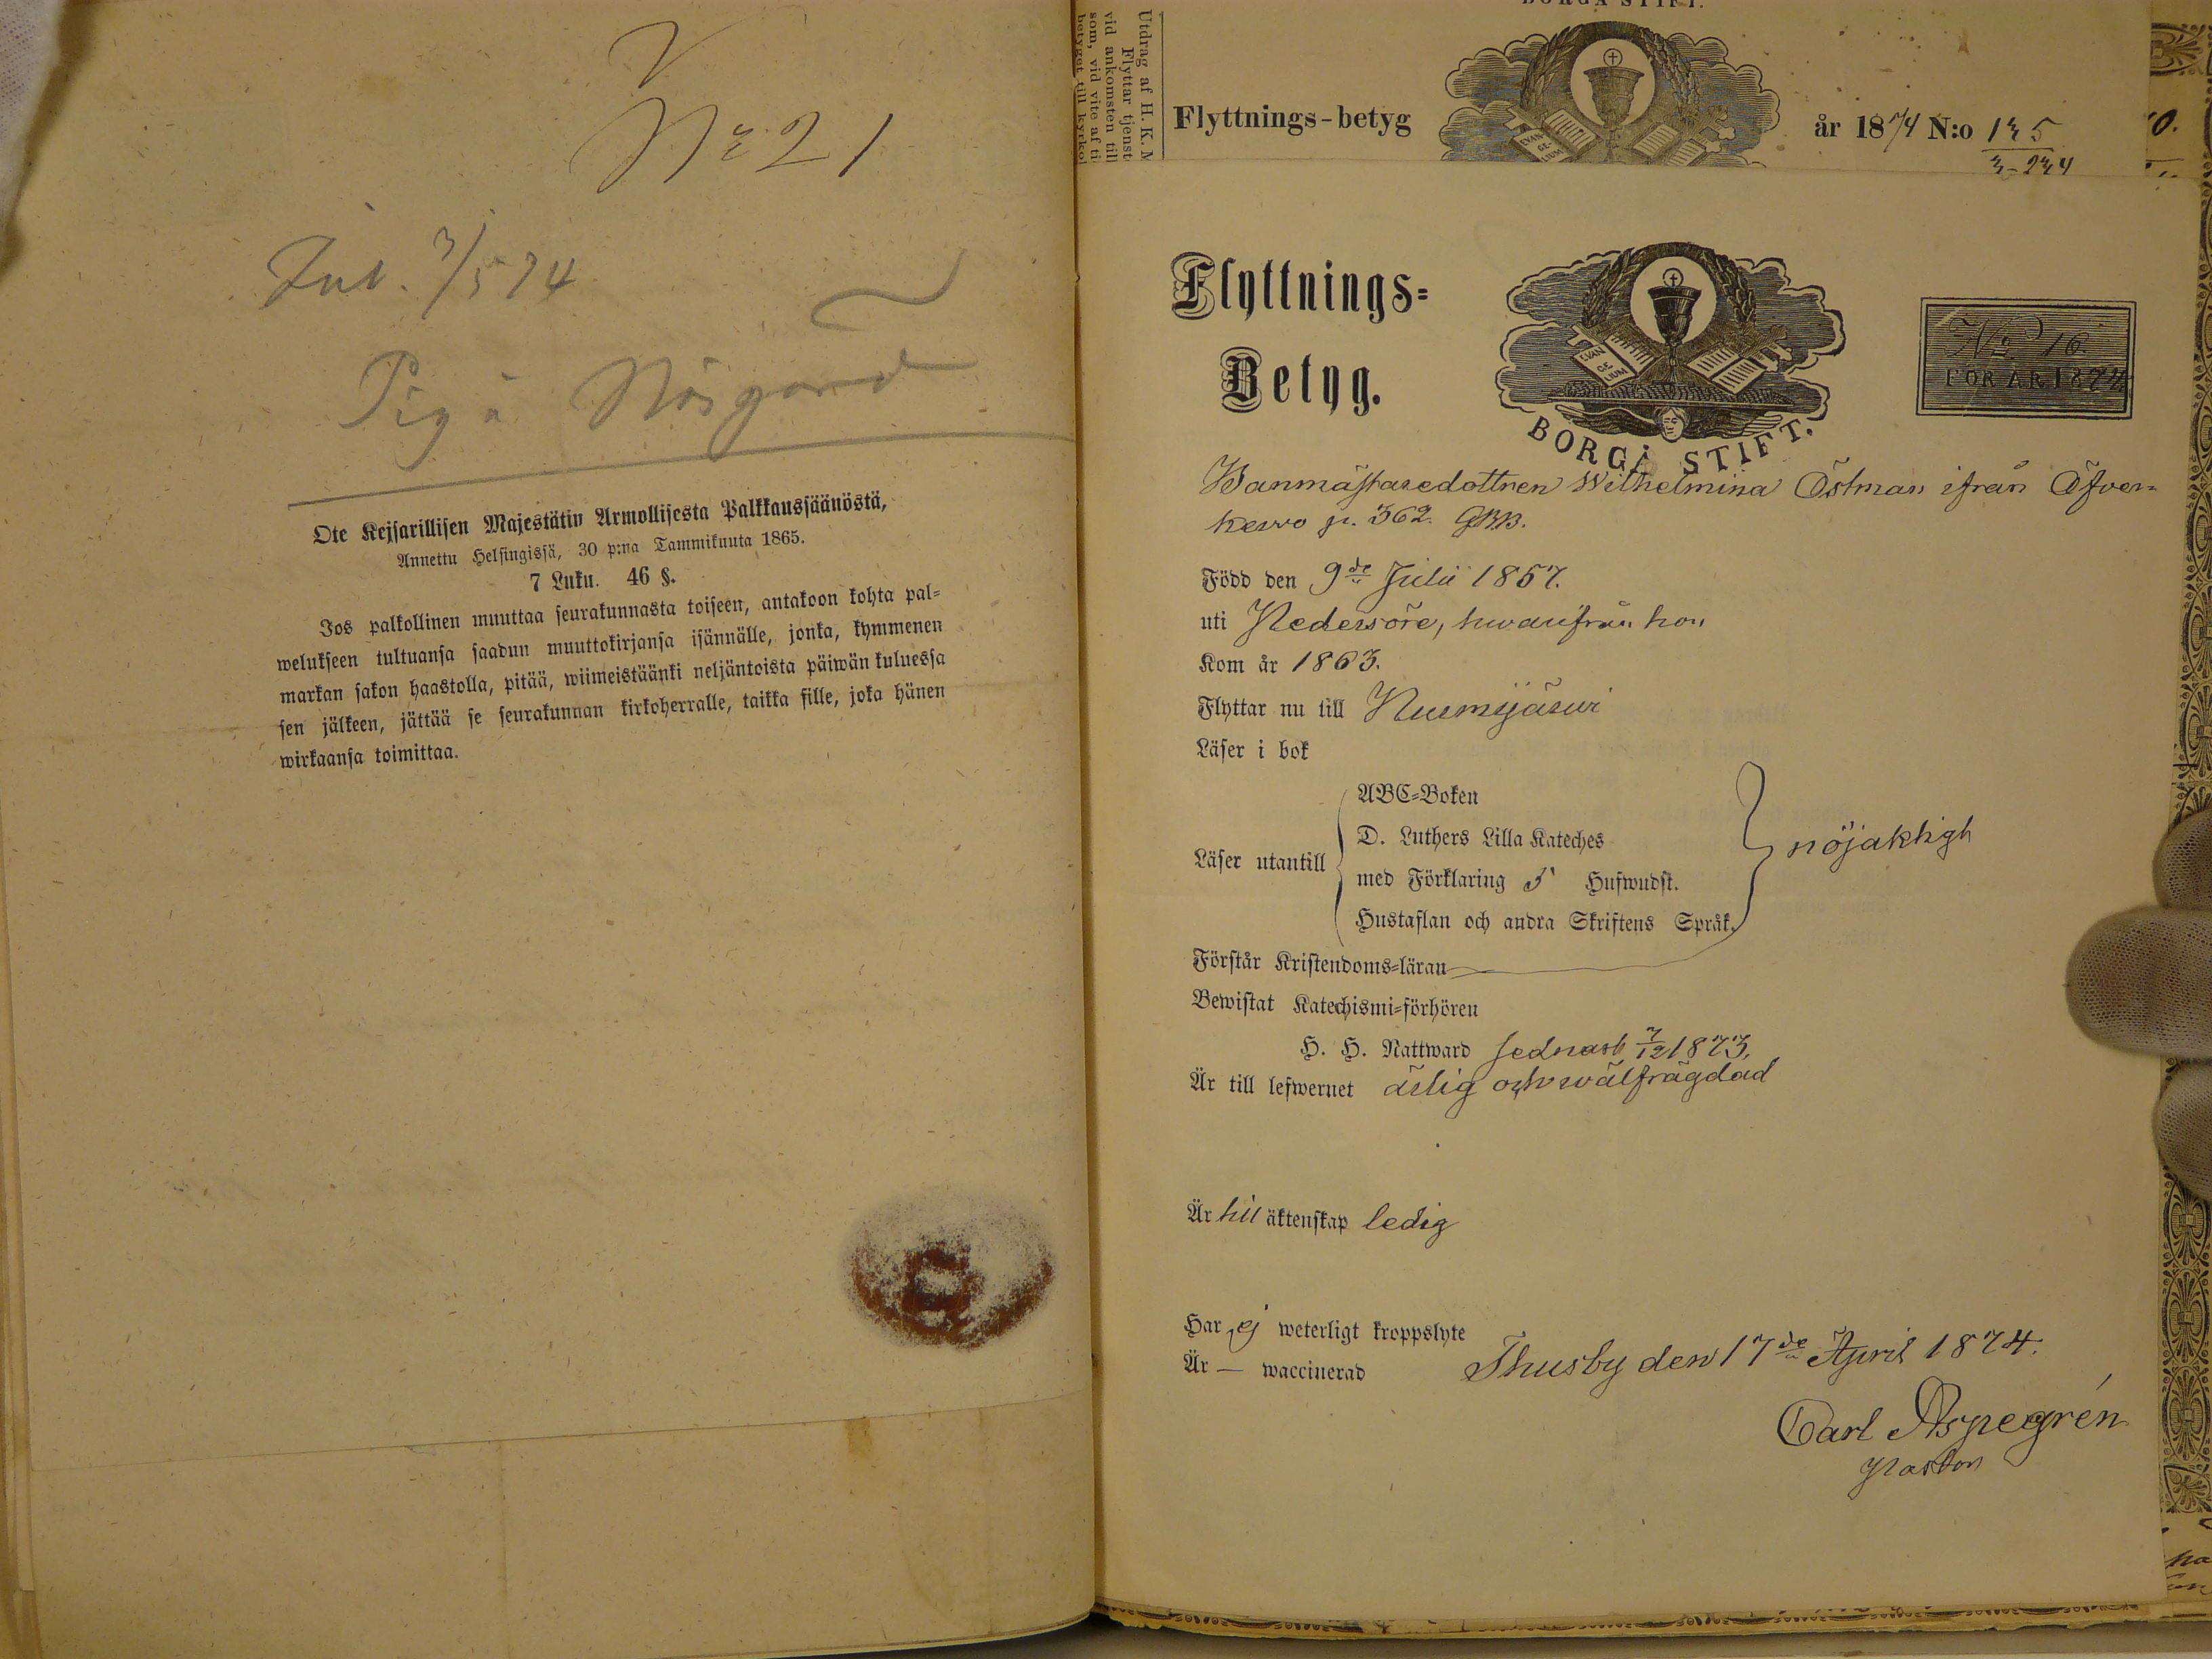 V
No 21
Inl. 7/5 74
Pig å Näsgård
Ote Kejsarillisen Majestätin Armollisesta Palkkaussäänöstä,
Annettu Helsingissä, 30 p:na Tammikuuta 1865.
7 Luku. 46 §.
Jos palkollinen muuttaa seurakunnasta toiseen, antakoon kohta pal=
welukseen tultuansa saadun muuttokirjansa isännälle, jonka, kymmenen
markan sakon haastolla, pitää, wiimeistäänki neljäntoista päiwän kuluessa
sen jälkeen, jättää se seurakunnan kirkoherralle, taikka sille, joka hänen
wirkaansa toimittaa.
Utdrag af H. K. M
Flyttar tjenst
vid ankomsten till
som, vid vite af ti
betyget till kyrko
BORGÅ STIFT.
Flyttnings-betyg
EVAN
GE-
LIUM
år 1874 N:o 135
3-234
Flyttnings=
Betyg.
EVAN
GE-
IUM
BORGÅ STIFT.
No 16.
FÖR ÅR 1874.
Banmästaredottren Wilhelmina Östman ifrån Öfver=
kerwo p. 362.
Född den 9de Julii 1857.
uti Pedersöre, hwarifrån hon
Kom år 1863.
Flyttar nu till Nurmijärwi
Läser i bok
Läser utantill
ABC=Boken
D. Luthers Lilla Kateches
med Förklaring 5 Hufwudst.
Hustaflan och andra Skriftens Språk.
nöjaktigt
Förstår Kristendoms=läran
Bewistat Katechismi=förhören
H. H. Nattward sednast 7/12 1873.
Är till lefwernet ärlig och wälfrägdad
Är till äktenskap ledig
Har ej weterligt kroppslyte
Är — waccinerad
Thusby den 17de April 1874.
Carl Aspegrén
Pastor